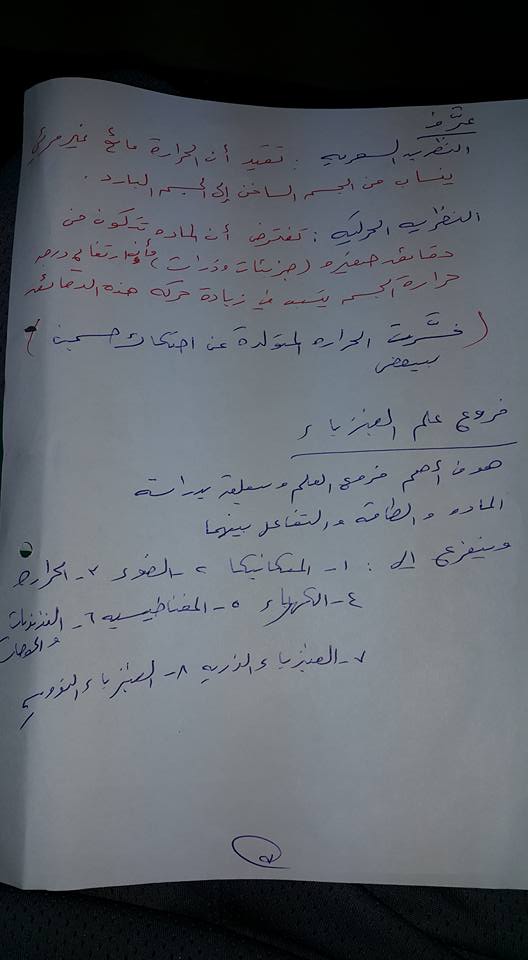 عرّف
النظريه السعريه : تفيد أن الحرارة مائع غير مرئي
ينساب من الجسم الساخن إلى الجسم البارد .
النظريه الحركيه : تفترض أن الماده تتكون من
دقائق صغيره (جزيئات وذرات) وأن ارتفاع درجه
حرارة الجسم يتسبب في زيادة حركه هذه الدقائق
(فسّرت الحراره المتولدة عن احتكاك جسمين)
ببعض
فروع علم الفيزياء
هو من أهم فروع العلم ويتعلق بدراسة
الماده والطاقه والتفاعل بينهما
ويتفرع إلى : ١- الميكانيكا ٢- الضوء ٣- الحراره
٤- الكهرباء ٥- المغناطيسيه ٦-
والموجات
٧- الفيزياء الذريه ٨- الفيزياء النوويه
٧